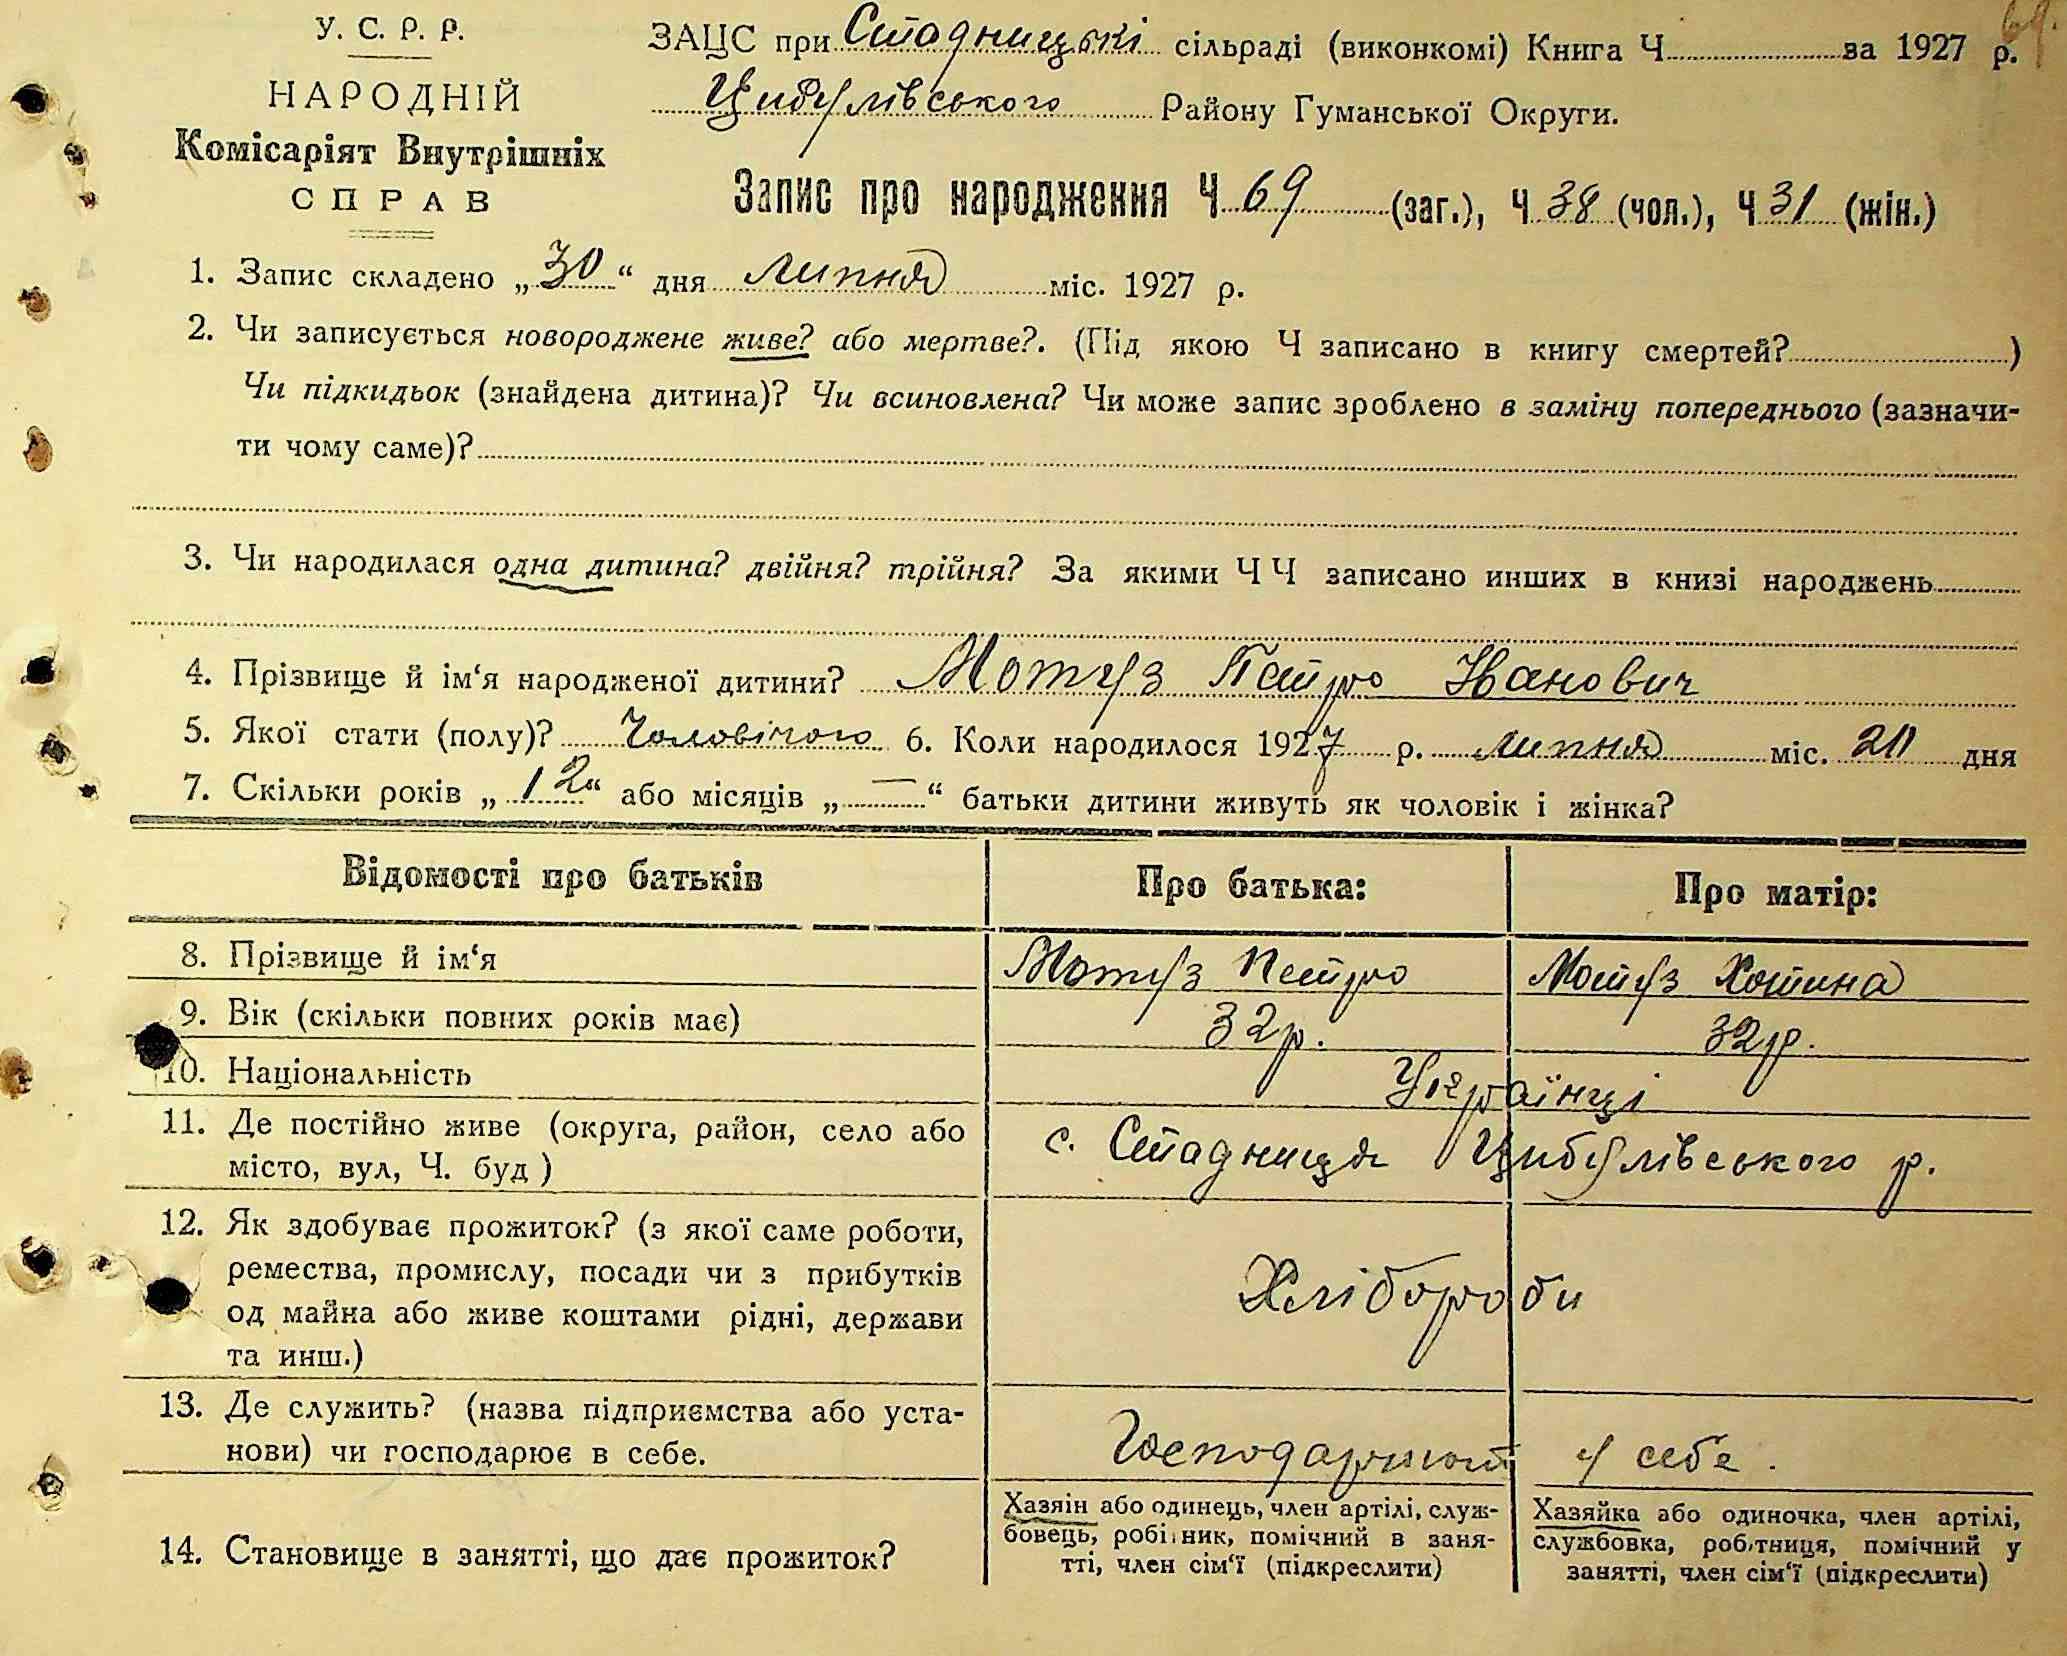 69.
У. С. Р. Р.
НАРОДНІЙ
Комісаріят Внутрішніх
СПРАВ
ЗАЦС при Стадницькі сільраді (виконкомі) Книга Ч. за 1927 р.
Цибулівського Району Гуманської Округи.
Запис про народження Ч 69 (заг.), Ч 38 (чол.), Ч 31 (жін.)
1. Запис складено „30“ дня липня міс. 1927 р.
2. Чи записується новороджене живе? або мертве?. (Під якою Ч записано в книгу смертей? )
Чи підкидьок (знайдена дитина)? Чи всиновлена? Чи може запис зроблено в заміну попереднього (зазначи-
ти чому саме)?
3. Чи народилася одна дитина? двійня? трійня? За якими ЧЧ записано инших в книзі народжень
4. Прізвище й ім‘я народженої дитини? Мотуз Петро Іванович
5. Якої стати (полу)? Чоловічого 6. Коли народилося 1927 р. липня міс. 20 дня
7. Скільки років „12“ або місяців „—“ батьки дитини живуть як чоловік і жінка?
Відомості про батьків Про батька: Про матір:
8. Прізвище й ім‘я Мотуз Петро Мотуз Хотина
9. Вік (скільки повних років має) 32р. 32р.
10. Національність Українці
11. Де постійно живе (округа, район, село або
місто, вул, Ч. буд ) с. Стадниця Цибулівського р.
12. Як здобуває прожиток? (з якої саме роботи,
ремества, промислу, посади чи з прибутків
од майна або живе коштами рідні, держави
та инш.) Хлібороби
13. Де служить? (назва підприємства або уста-
нови) чи господарює в себе. Господарюють у себе.
14. Становище в занятті, що дає прожиток?
Хазяін або одинець, член артілі, служ-
бовець, робітник, помічний в заня-
тті, член сім‘ї (підкреслити)
Хазяйка або одиночка, член артілі,
службовка, робітниця, помічний у
занятті, член сім‘ї (підкреслити)